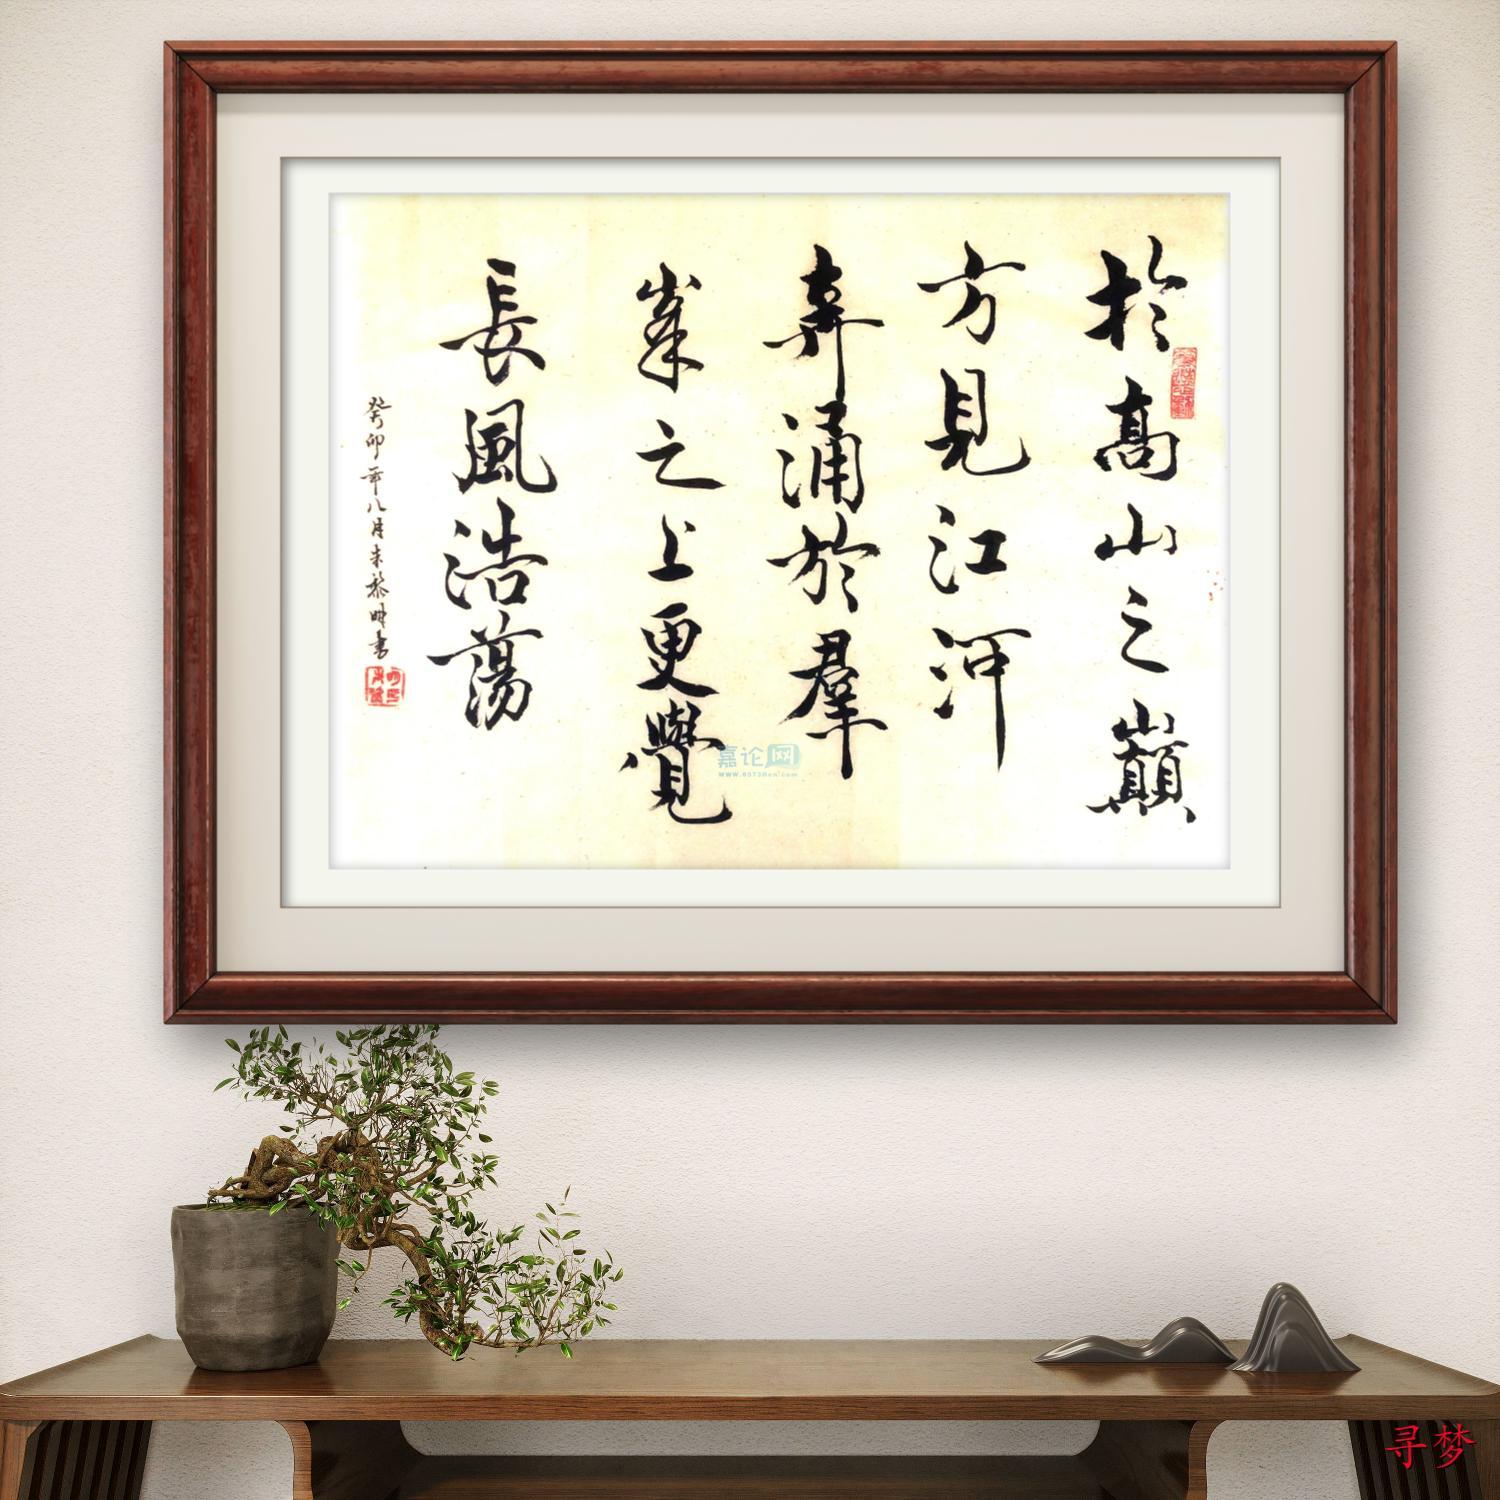 於高山之巔
方見江河
奔涌於羣
峯之上更覺
長風浩蕩
癸卯年八月朱黎明書
嘉论网
www.0573ren.com
寻梦